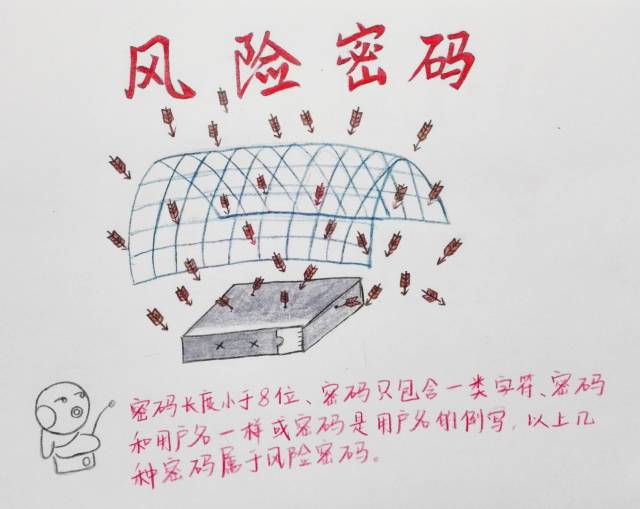 风险密码
密码长度小于8位、密码只包含一类字符、密码
和用户名一样或密码是用户名的倒写，以上几
种密码属于风险密码。